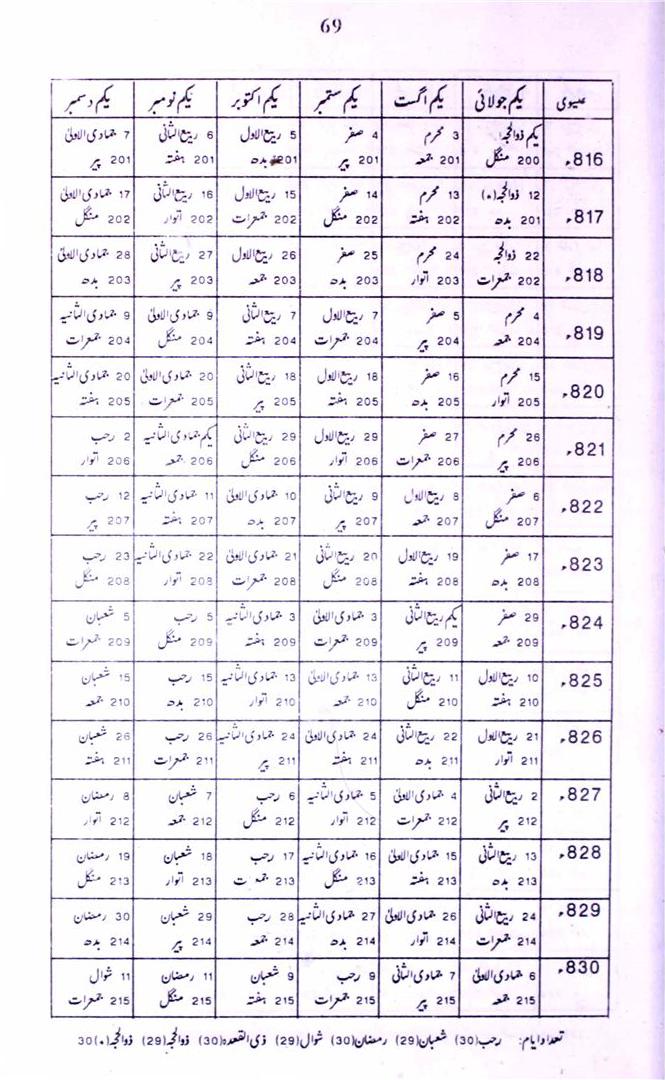 69
عیسوی یکم جولائی یکم اگست یکم ستمبر یکم اکتوبر یکم نومبر یکم دسمبر
816ء یکم ذوالحجہ 3 محرم 4 صفر 5 ربیع الاول 6 ربیع الثانی 7 جمادی الاولیٰ
200 منگل 201 جمعہ 201 پیر 201 بدھ 201 ہفتہ 201 پیر
817ء 12 ذوالحجہ(•) 13 محرم 14 صفر 15 ربیع الاول 16 ربیع الثانی 17 جمادی الاولیٰ
201 بدھ 202 ہفتہ 202 منگل 202 جمعرات 202 اتوار 202 منگل
818ء 22 ذوالحجہ 24 محرم 25 صفر 26 ربیع الاول 27 ربیع الثانی 28 جمادی الاولیٰ
202 جمعرات 203 اتوار 203 بدھ 203 جمعہ 203 پیر 203 بدھ
819ء 4 محرم 5 صفر 7 ربیع الاول 7 ربیع الثانی 9 جمادی الاولیٰ 9 جمادی الثانیہ
204 جمعہ 204 پیر 204 جمعرات 204 ہفتہ 204 منگل 204 جمعرات
820ء 15 محرم 16 صفر 18 ربیع الاول 18 ربیع الثانی 20 جمادی الاولیٰ 20 جمادی الثانیہ
205 اتوار 205 بدھ 205 ہفتہ 205 پیر 205 جمعرات 205 ہفتہ
821ء 26 محرم 27 صفر 29 ربیع الاول 29 ربیع الثانی یکم جمادی الثانیہ 2 رجب
206 پیر 206 جمعرات 206 اتوار 206 منگل 206 جمعہ 206 اتوار
822ء 6 صفر 8 ربیع الاول 9 ربیع الثانی 10 جمادی الاولیٰ 11 جمادی الثانیہ 12 رجب
207 منگل 207 جمعہ 207 پیر 207 بدھ 207 ہفتہ 207 پیر
823ء 17 صفر 19 ربیع الاول 20 ربیع الثانی 21 جمادی الاولیٰ 22 جمادی الثانیہ 23 رجب
208 بدھ 208 ہفتہ 208 منگل 208 جمعرات 208 اتوار 208 منگل
824ء 29 صفر یکم ربیع الثانی 3 جمادی الاولیٰ 3 جمادی الثانیہ 5 رجب 5 شعبان
209 جمعہ 209 پیر 209 جمعرات 209 ہفتہ 209 منگل 209 جمعرات
825ء 10 ربیع الاول 11 ربیع الثانی 13 جمادی الاولیٰ 13 جمادی الثانیہ 15 رجب 15 شعبان
210 ہفتہ 210 منگل 210 جمعہ 210 اتوار 210 بدھ 210 جمعہ
826ء 21 ربیع الاول 22 ربیع الثانی 24 جمادی الاولیٰ 24 جمادی الثانیہ 26 رجب 26 شعبان
211 اتوار 211 بدھ 211 ہفتہ 211 پیر 211 جمعرات 211 ہفتہ
827ء 2 ربیع الثانی 4 جمادی الاولیٰ 5 جمادی الثانیہ 6 رجب 7 شعبان 8 رمضان
212 پیر 212 جمعرات 212 اتوار 212 منگل 212 جمعہ 212 اتوار
828ء 13 ربیع الثانی 15 جمادی الاولیٰ 16 جمادی الثانیہ 17 رجب 18 شعبان 19 رمضان
213 بدھ 213 ہفتہ 213 منگل 213 جمعرات 213 اتوار 213 منگل
829ء 24 ربیع الثانی 26 جمادی الاولیٰ 27 جمادی الثانیہ 28 رجب 29 شعبان 30 رمضان
214 جمعرات 214 اتوار 214 بدھ 214 جمعہ 214 پیر 214 بدھ
830ء 6 جمادی الاولیٰ 7 جمادی الثانی 9 رجب 9 شعبان 11 رمضان 11 شوال
215 جمعہ 215 پیر 215 جمعرات 215 ہفتہ 215 منگل 215 جمعرات
تعداد ایام: رجب(30) شعبان(29) رمضان(30) شوال(29) ذی القعدہ(30) ذوالحجہ(29) ذوالحجہ(•)30